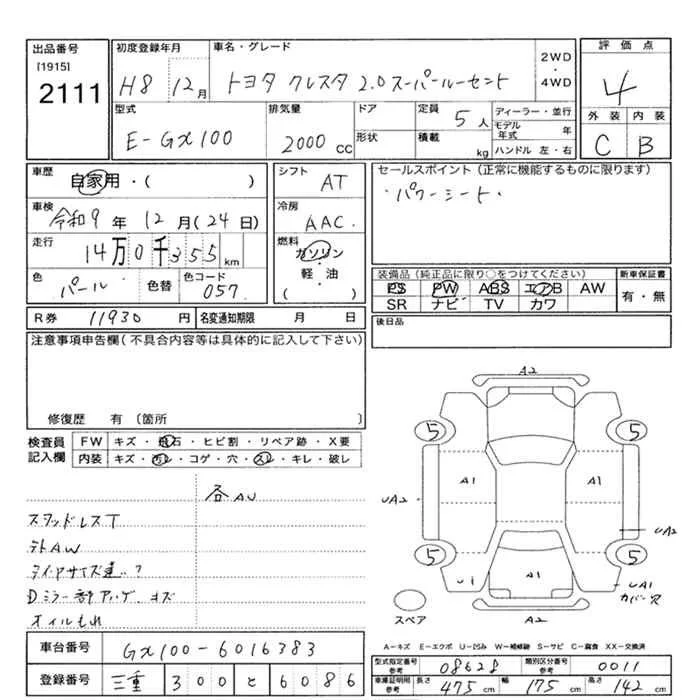 出品番号 初度登録年月 車名・グレード 2WD 評価点
[1915]
2111 H8 12月 トヨタ クレスタ 2.0スーパールーセント ・ 4WD 4
型式 排気量 ドア 定員 5人 ディーラー・並行 外装 内装
E-GX100 2000 CC 形状 積載 kg モデル年式 年 C B
ハンドル 左・右
車歴 自家用・( ) シフト AT セールスポイント(正常に機能するものに限ります)
車検 令和9年12月(24日) 冷房 AAC ・パワーシート・
走行 14万0千355km 燃料 ガソリン・軽・油 ( )
色 パール 色替 色コード 057 装備品(純正品に限り○をつけてください) 新車保証書
PS PW ABS エアB AW 有・無
SR ナビ TV カワ
R券 11930円 名変通知期限 月 日 後日品
注意事項申告欄(不具合内容等は具体的に記入して下さい)
修復歴 有 〔箇所 〕
検査員記入欄 FW キズ・飛石・ヒビ割・リペア跡・X要
内装 キズ・汚レ・コゲ・穴・スレ・キレ・破レ
各AU
スタッドレスT
テトAW
タイヤサイズ違
Dミラー部 キズ
オイルもれ
A2
5 5
A1 A1
UA2 UA2
5 5
U1 A1 UA1
カバー欠
スペア A2
A－キズ E－エクボ U－凹み W－補修跡 S－サビ C－腐食 XX－交換済
車台番号 GX100-6016383 型式指定番号 参考 08628 類別区分番号 参考 0011
登録番号 三重 300 と 6086 車庫証明用 参考 長さ 475cm 幅 175cm 高さ 142cm